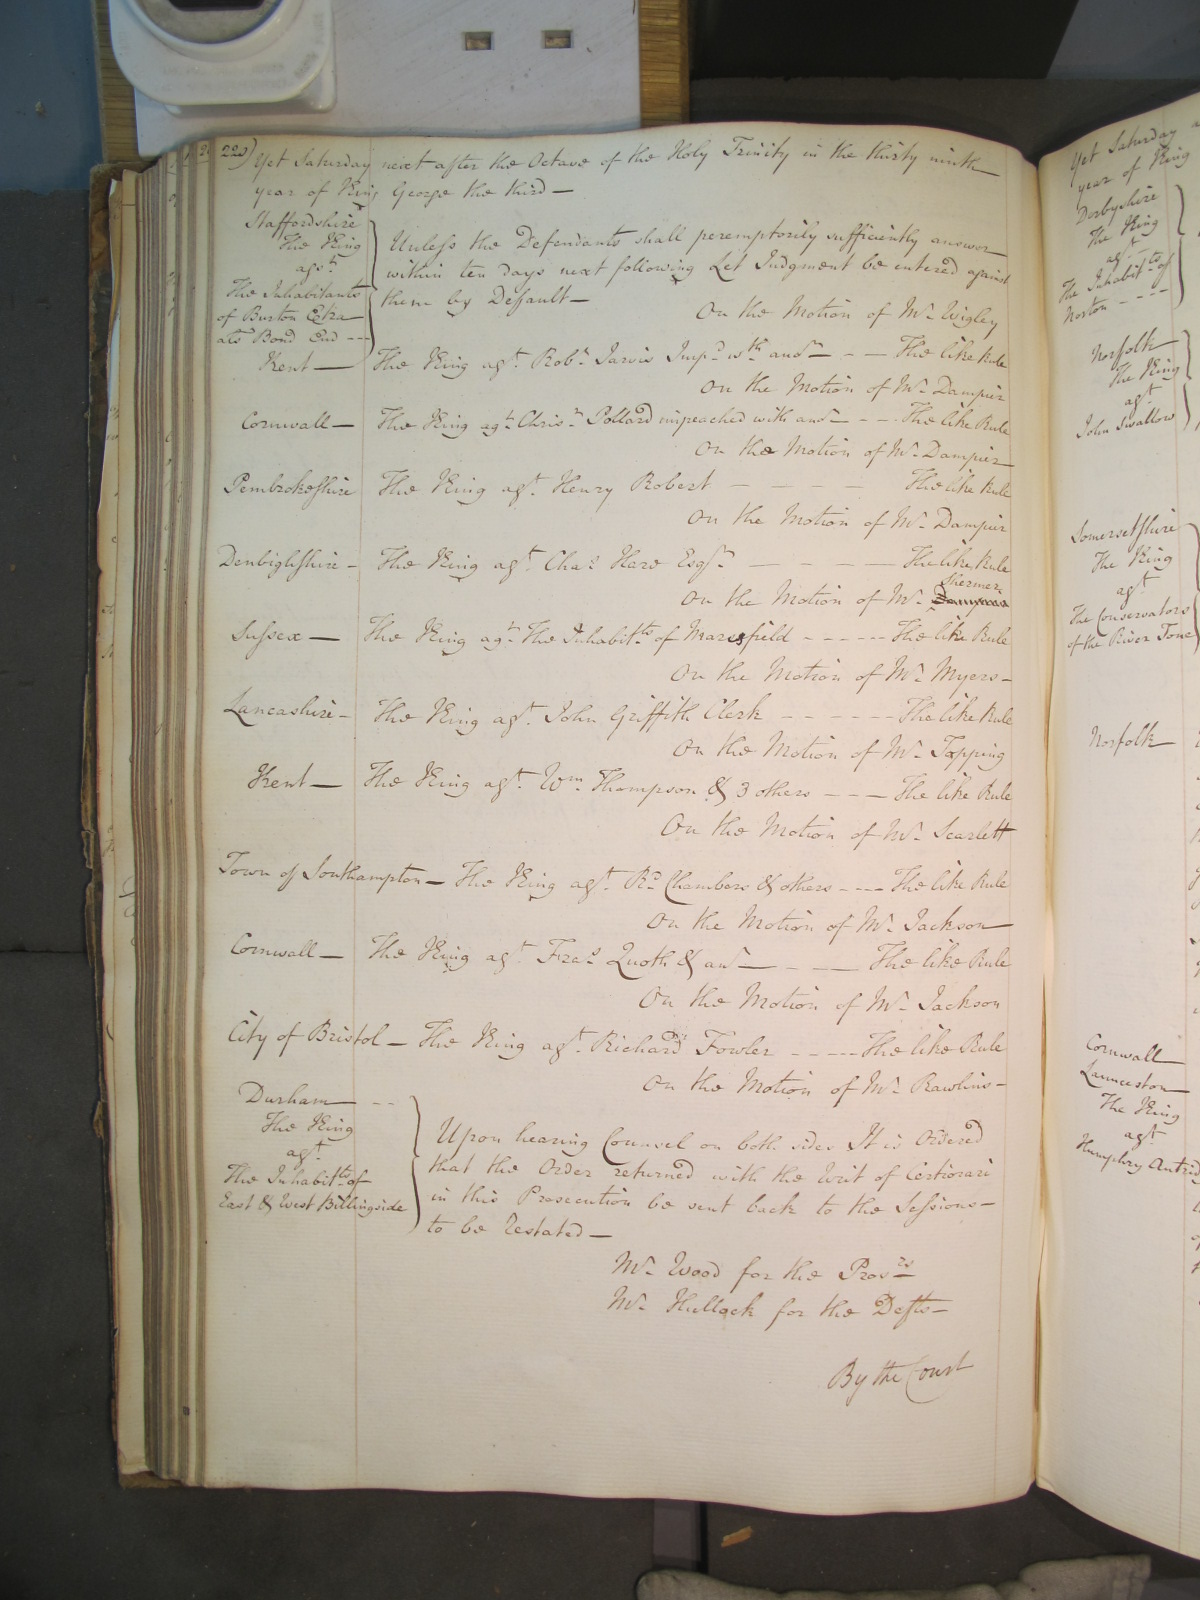 220) Yet Saturday next after the Octave of the Holy Trinity in the thirty ninth
year of King George the third —
Staffordshire
The King
agst
The Inhabitants
of Burton Extra
als Bond End ---
Unless the Defendants shall peremptorily sufficiently answer
within ten days next following Let Judgment be entered against
them by Default —
On the Motion of Mr Wigley
Kent — The King agt. Robt Jarvis Imp.d wth anor — — The like Rule
On the Motion of Mr Dampier
Cornwall — The King agt Chrisr Pollard impeached with anr — - — The like Rule
On the Motion of Mr Dampier
Pembrokeshire The King agt. Henry Robert — — — — The like Rule
On the Motion of Mr Dampier
Denbighshire — The King agt. Chas Hare Esqr — — — — The like Rule
Shermer
On the Motion of Mr Dampier
Sussex — The King agt The Inhabitts of Maresfield - - - - - - The like Rule
On the Motion of Mr Myers —
Lancashire — The King agt. John Griffith Clerk - - - - - - The like Rule
On the Motion of Mr Topping
Kent — The King agt. Wm Thompson & 3 others - - - The like Rule
On the Motion of Mr Scarlett
Town of Southampton — The King agt. Rd Chambers & others - - - - The like Rule
On the Motion of Mr Jackson
Cornwall — The King agt Fras Quoth & anr — - — The like Rule
On the Motion of Mr Jackson
City of Bristol — The King agt. Richard Fowler - - - - The like Rule
On the Motion of Mr Rawlins —
Durham — --
The King
agt
The Inhabitts of
East & West Billingside
Upon hearing Counsel on both sides It is Ordered
that the Order returned with the Writ of Certiorari
in this Prosecution be sent back to the Sessions —
to be Restated —
Mr Wood for the Prosrs —
Mr Hullock for the Defts —
By the Court
Yet Saturday
year of King
Derbyshire
The King
agt
The Inhabitts of
Norton - - - -
Norfolk
The King
agt
John Swallow
Somersetshire
The King
agt
The Conservators
of the River Tone
Norfolk
Cornwall
Launceston
The King
agt
Humphry